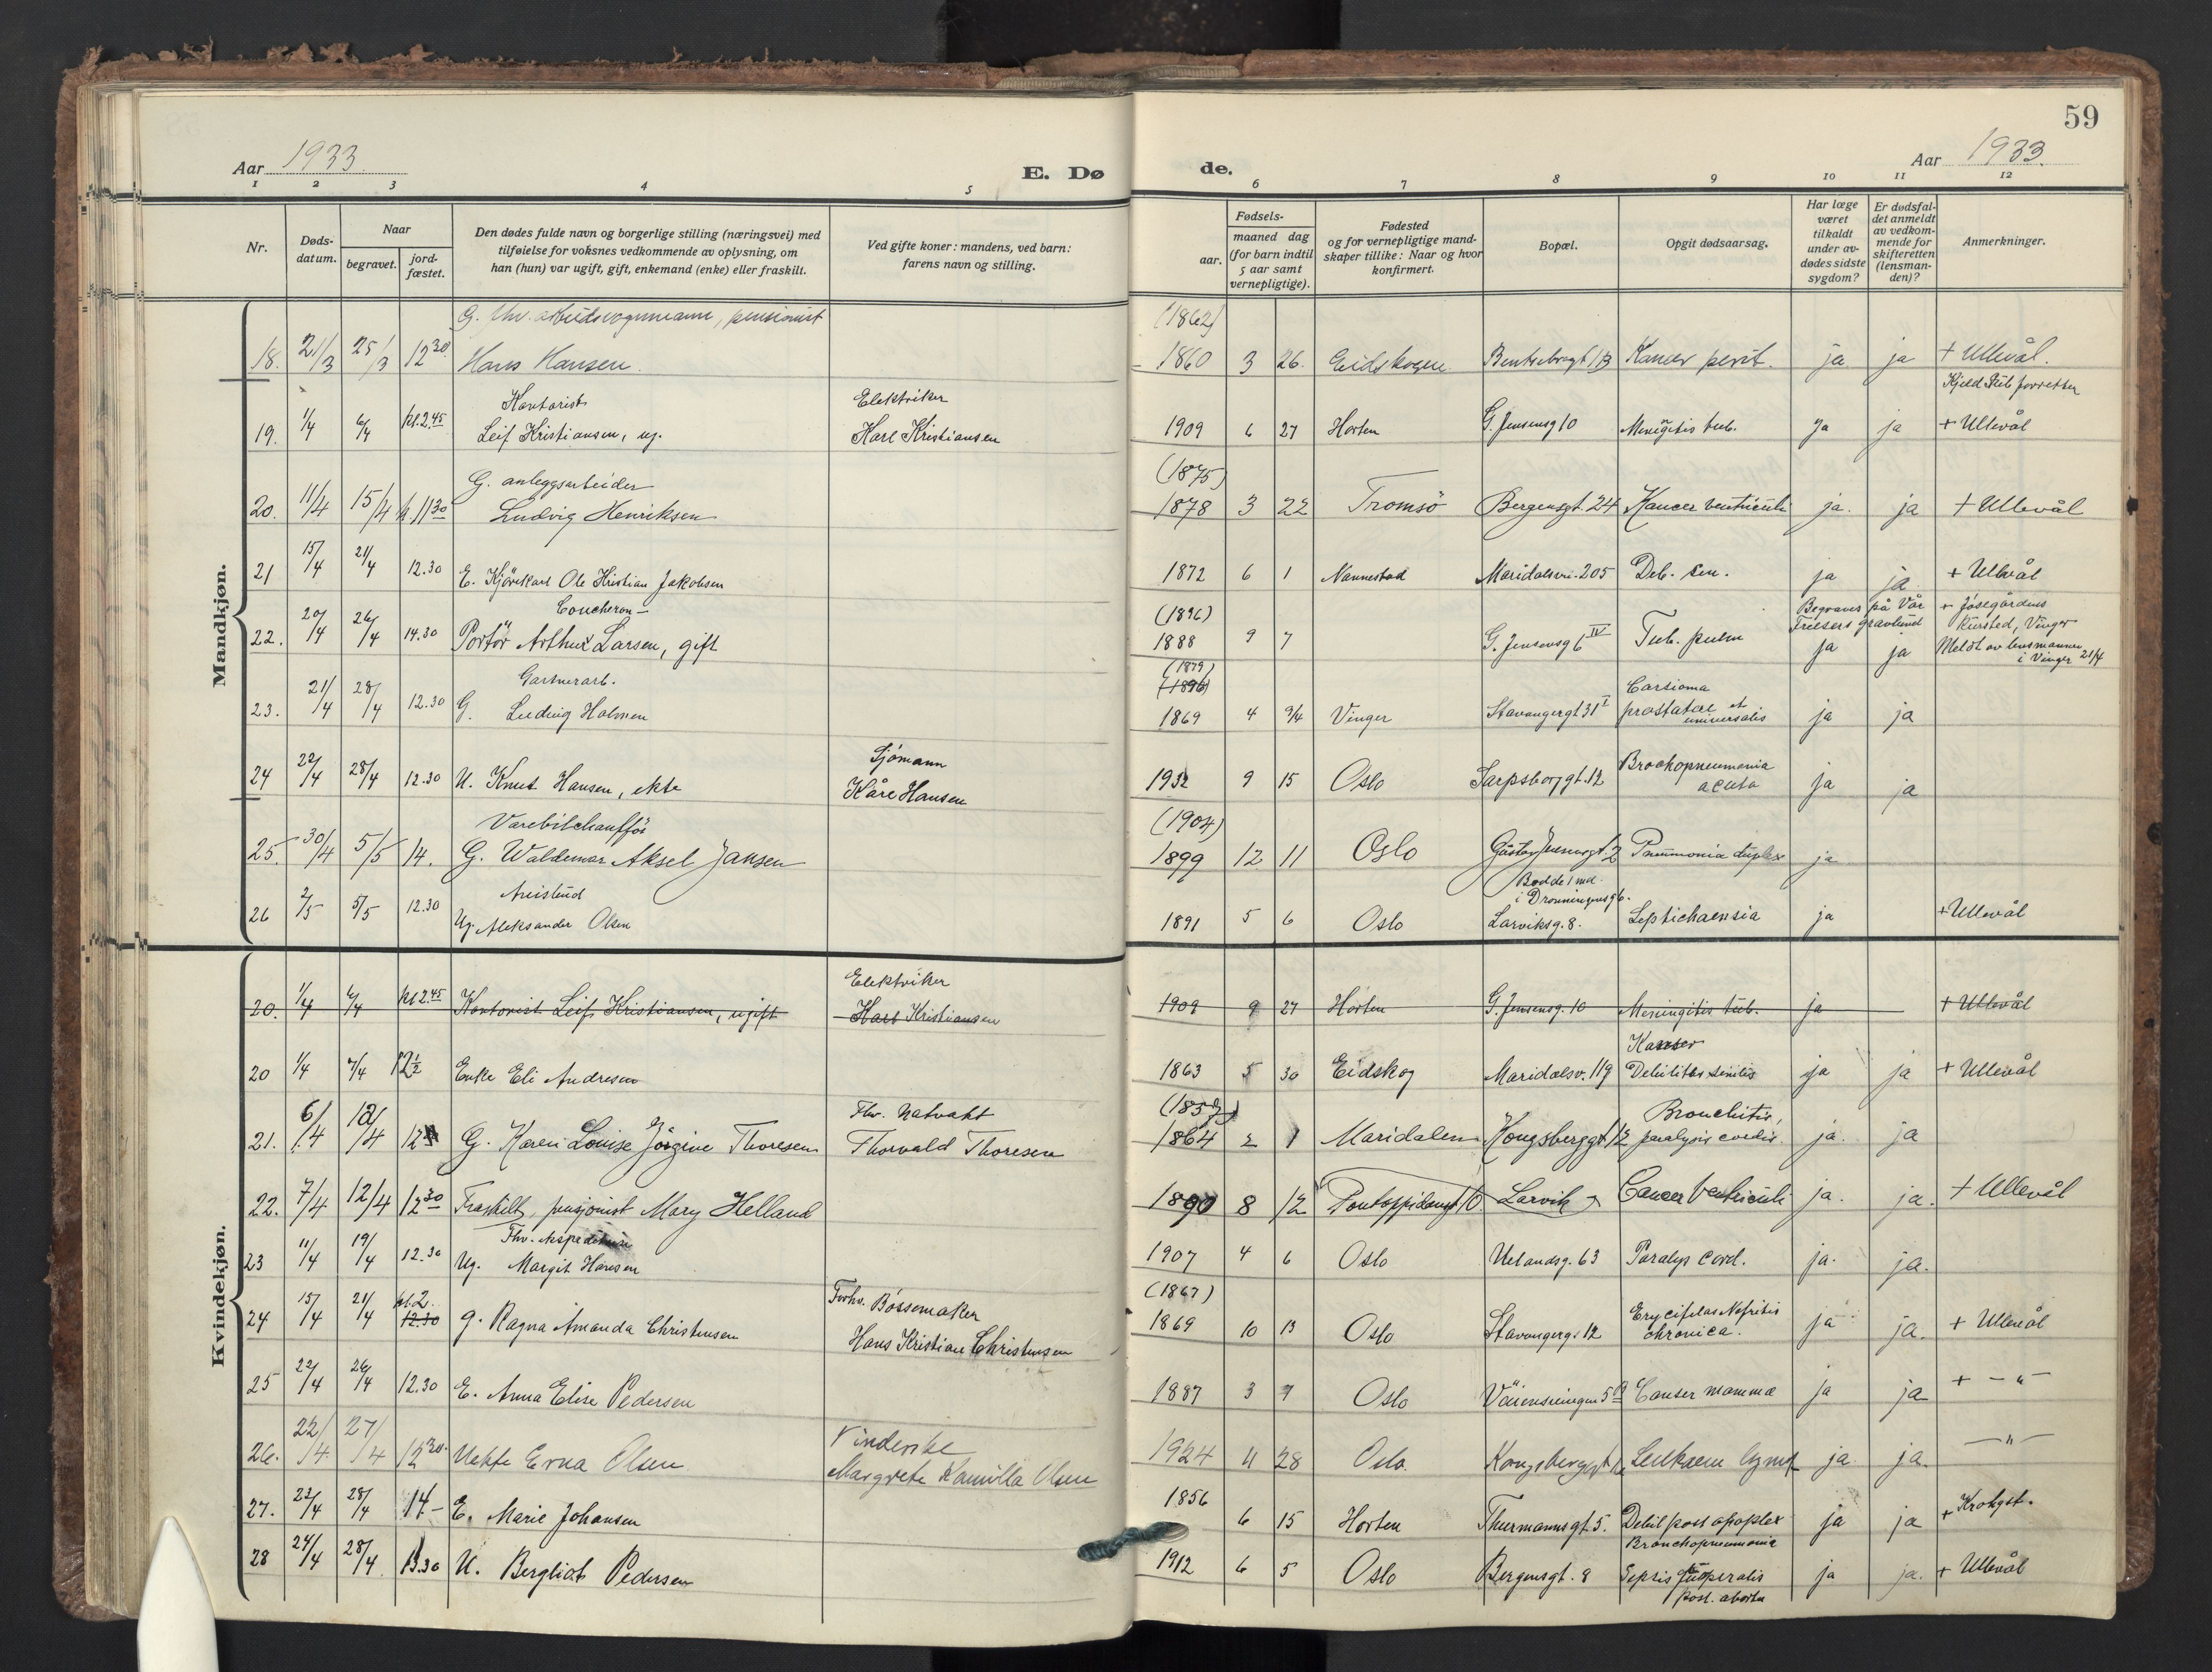 59
Aar 1933.
E. Dø
de.
Aar 1933.
1 2 3 4 5 6 7 8 9 10 11 12
Nr.
Døds-
datum.
Naar
begravet.
jord-
fæstet.
Den dødes fulde navn og borgerlige stilling (næringsvei) med
tilføielse for voksnes vedkommende av oplysning, om
han (hun) var ugift, gift, enkemand (enke) eller fraskilt.
Ved gifte koner: mandens, ved barn:
farens navn og stilling.
Fødsels-
aar.
maaned dag
(for barn indtil
5 aar samt
vernepligtige).
Fødested
og for vernepligtige mand-
skaper tillike: Naar og hvor
konfirmert.
Bopæl.
Opgit dødsaarsag.
Har læge
været
tilkaldt
under av-
dødes sidste
sygdom?
Er dødsfal-
det anmeldt
av vedkom-
mende for
skifteretten
(lensman-
den)?
Anmerkninger.
Mandkjøn.
G. fhv. arbeidsvognmann, pensionist (1862)
18. 21/3 25/3 12 30 Hans Hansen. 1860 3 26. Eidskogen Bentsebrogt 13 Kancer perit. ja ja + Ullevål.
Kontorist Elektriker Kjeld Stub forretter
19. 1/4 6/4 kl. 2.45 Leif Kristiansen, ug. Karl Kristiansen 1909 6 27 Horten G. Jensensg 10 Menigitis tub. ja ja + Ullevål
G. anleggsarbeider (1875)
20. 11/4 15/4 kl. 11 30 Ludvig Henriksen 1878 3 22 Tromsö Bergensgt. 24 Kancer ventriculi ja. ja + Ullevål
21 15/4 21/4 12.30 E. Kjørekarl Ole Kristian Jakobsen 1872 6 1 Nannestad Maridalsvn. 205 Deb. sen. ja ja + Ullevål
Coucheron – (1896) Begraves på Vår + Jøsegårdens
Frelsers gravlund kursted, Vinger
22. 20/4 26/4 14.30 Portör Arthur Larsen, gift 1888 9 7 G. Jensensg 6 IV Tub. pulm ja ja Meldt av lensmannen
i Vinger 21/4
Gartnerarb. (1879) (1896) Carsioma
23. 21/4 28/4 12.30 G. Ludvig Holmen 1869 4 9/4 Vinger Stavangergt 31 I prostatae et
universalis ja ja
Sjömann
24 22/4 28/4 12.30 U. Knut Hansen, ekte Kåre Hansen 1932 9 15 Oslo Sarpsborggt. 12 Brookopneumonia
acuta ja ja
Varebilchauffør (1904)
25. 30/4 5/5 14. G. Waldemar Aksel Jansen 1899 12 11 Oslo Gustav Jensensgt. 2 Pneumonia duplex ja
Bodde 1 md.
i Dronningensg 6.
26 2/5 5/5 12.30 Ug. Aleksander Olsen 1891 5 6 Oslo Larviksg. 8. Septichaemsia ja + Ullevål
Kvindekjøn.
Elektriker
20. 1/4 6/4 kl 2.45 Kontorist Leif Kristiansen, ugift Karl Kristiansen 1909 9 27 Horten G. Jensensg. 10 Meningitis tub. ja + Ullevål
Kanser
20 1/4 7/4 12 1/2 Enke Eli Andresen 1863 5 30 Eidskog Maridalsv. 119 Debilitas senilis ja ja + Ullevål
Fhv. Natvakt (1857) Bronchitis,
21. 6/4 12/4 12 G. Karen Louise Jörgine Thoresen Thorvald Thoresen 1864 2 1 Maridalen Kongsberggt 12 paralysis cordis ja. ja
22. 7/4 12/4 12 30 Fraskilt, pensjonist Mary Helland 1890 8 12 Pontoppidansgt 10 Larvik Cancer Ventriculi ja. ja. + Ullevål
23 11/4 19/4 12.30 Ug. Margit Hansen 1907 4 6 Oslo Uelandsg. 63 Paralys cord. ja. ja.
Forhv. Børsemaker (1867)
24 15/4 21/4 kl. 2. 12.30 g. Ragna Amanda Christensen Hans Kristian Christensen 1869 10 13 Oslo Stavangerg. 12 Erycifilas Nefritis
chronica. ja ja. + Ullevål
25 22/4 26/4 12.30 E. Anna Elise Pedersen 1887 3 7 Oslo Canser mamma ja ja + – " –
26. 22/4 27/4 12 30. Uekte Erna Olsen Margrete Kamilla Olsen 1924 11 28 Oslo. Kongsberggt Leukaem lymf ja ja. – " –
27. 23/4 28/4 14 – E. Marie Johansen 1856 6 15 Horten Thurmannsgt. 5. Debil post apoplex ja ja + Krohgst.
Bronchopneumonia
28 24/4 28/4 13.30 U. Bergliot Pedersen 1912 6 5 Oslo Bergensgt. 8 Sepsis puoperalis
post. abortu ja ja. + Ullevål